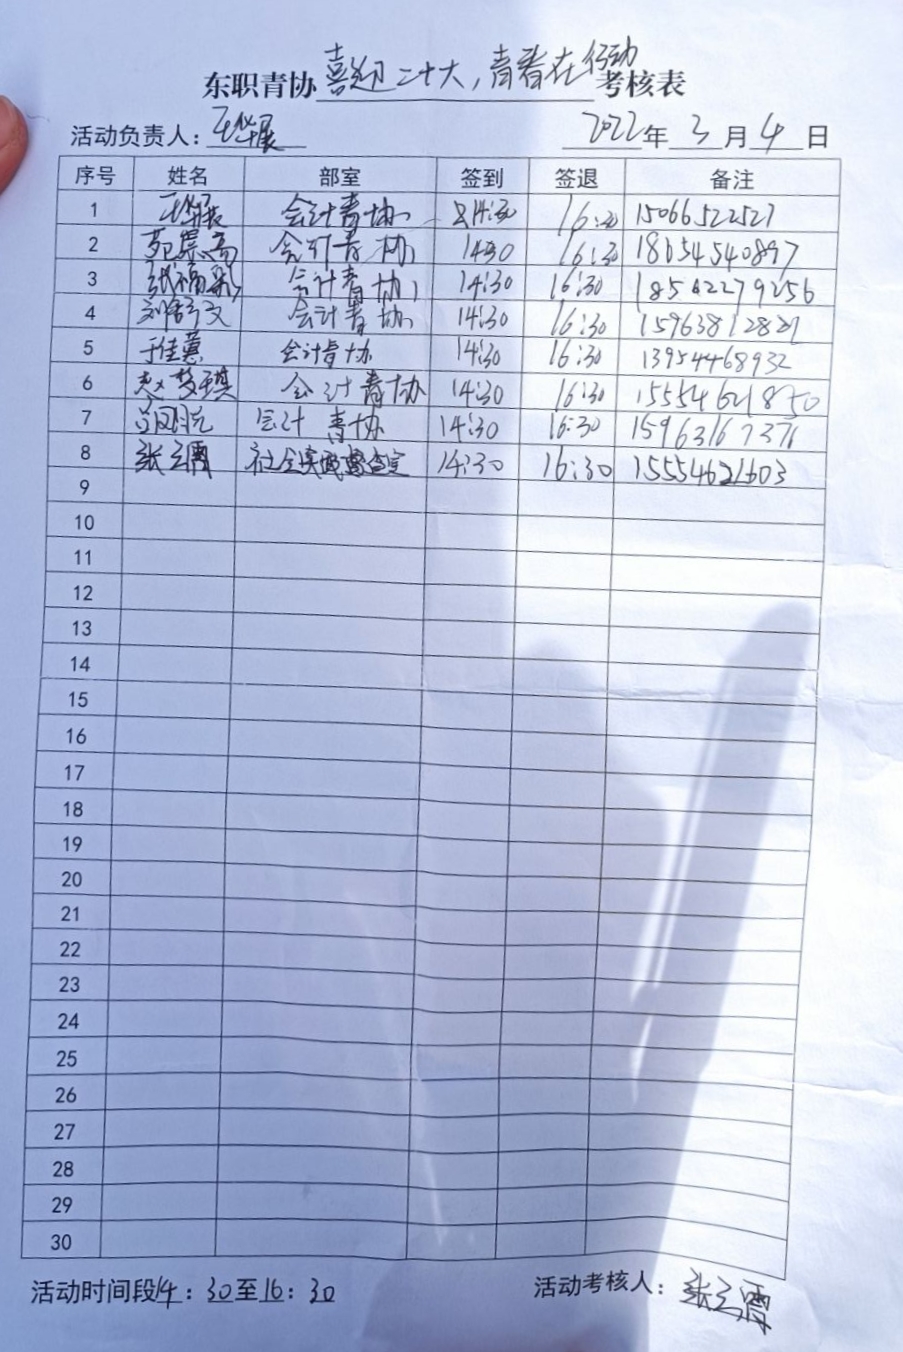 东职青协喜迎二十大，青春在行动考核表
活动负责人：王华展 2022年3月4日
序号 姓名 部室 签到 签退 备注
1 王华展 会计青协 14:30 16:30 15066522527
2 会计青协 14:30 16:30 18654540897
3 张福彩 会计青协 14:30 16:30 18542279256
4 会计青协 14:30 16:30 15963812821
5 于佳蕙 会计青协 14:30 16:30 13954468932
6 赵梦琪 会计青协 14:30 16:30 15554621850
7 会计青协 14:30 16:30 15963167376
8 张云霄 社会实践 14:30 16:30 15554621603
9
10
11
12
13
14
15
16
17
18
19
20
21
22
23
24
25
26
27
28
29
30
活动时间段14：30至16：30 活动考核人：张云霄